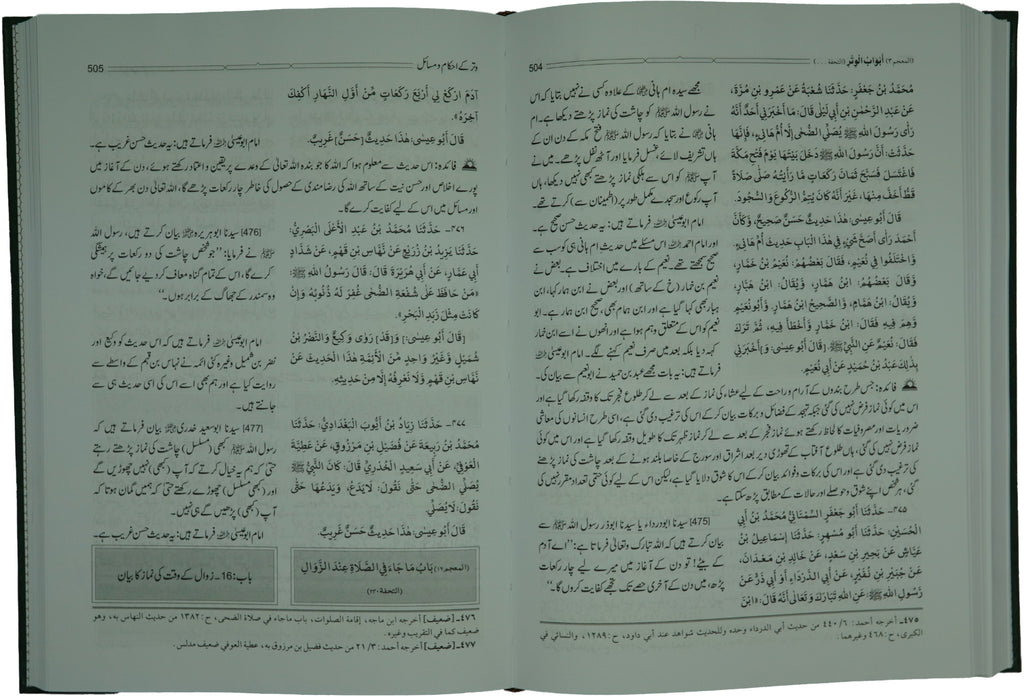 (المعجم ٣) أَبْوَابُ الْوِتْرِ (التحفة ...)
504
مُحَمَّدُ بْنُ جَعْفَرٍ: حَدَّثَنَا شُعْبَةُ عَنْ عَمْرِو بْنِ مُرَّةَ،
عَنْ عَبْدِ الرَّحْمٰنِ بْنِ أَبِي لَيْلَى قَالَ: مَا أَخْبَرَنِي أَحَدٌ أَنَّهُ
رَأَى رَسُولَ اللهِ ﷺ يُصَلِّي الضُّحَى إِلَّا أُمُّ هَانِىءٍ، فَإِنَّهَا
حَدَّثَتْ: أَنَّ رَسُولَ اللهِ ﷺ دَخَلَ بَيْتَهَا يَوْمَ فَتْحِ مَكَّةَ
فَاغْتَسَلَ فَسَبَّحَ ثَمَانَ رَكَعَاتٍ مَا رَأَيْتُهُ صَلَّى صَلَاةً
قَطُّ أَخَفَّ مِنْهَا، غَيْرَ أَنَّهُ كَانَ يُتِمُّ الرُّكُوعَ وَالسُّجُودَ.
قَالَ أَبُو عِيسَى: هٰذَا حَدِيثٌ حَسَنٌ صَحِيحٌ، وَكَأَنَّ
أَحْمَدَ رَأَى أَصَحَّ شَيْءٍ فِي هٰذَا الْبَابِ حَدِيثَ أُمِّ هَانِىءٍ.
وَاخْتَلَفُوا فِي نُعَيْمٍ، فَقَالَ بَعْضُهُمْ: نُعَيْمُ بْنُ خَمَّارٍ،
وَقَالَ بَعْضُهُمْ: ابْنُ هَمَّارٍ، وَيُقَالُ: ابْنُ هَبَّارٍ،
وَيُقَالُ: ابْنُ هَمَّامٍ، وَالصَّحِيحُ ابْنُ هَمَّارٍ. وَأَبُو نُعَيْمٍ
وَهِمَ فِيهِ فَقَالَ: ابْنُ خَمَّارٍ وَأَخْطَأَ فِيهِ، ثُمَّ تَرَكَ
فَقَالَ: نُعَيْمٌ عَنِ النَّبِيِّ ﷺ. [قَالَ أَبُو عِيسَى: وَ]أَخْبَرَنِي
بِذٰلِكَ عَبْدُ بْنُ حُمَيْدٍ عَنْ أَبِي نُعَيْمٍ.
مجھے سیدہ ام ہانی ؓ کے علاوہ کسی نے نہیں بتایا کہ اس
نے رسول اللہ ﷺ کو چاشت کی نماز پڑھتے دیکھا ہے۔ ام
ہانی ؓ نے بتایا کہ رسول اللہ ﷺ فتح مکہ کے دن ان کے
ہاں تشریف لائے، غسل فرمایا اور آٹھ نفل پڑھے۔ میں نے
آپ ﷺ کو اس سے ہلکی نماز پڑھتے کبھی نہیں دیکھا، ہاں
آپ رکوع اور سجدے مکمل طور پر (اطمینان سے) کرتے تھے۔
امام ابوعیسیٰ ؒ فرماتے ہیں: یہ حدیث حسن صحیح ہے۔
اور امام احمد ؒ اس مسئلے میں حدیث ام ہانی کو سب سے
صحیح سمجھتے تھے۔ نعیم کے بارے میں اختلاف ہے۔ بعض نے
نعیم بن خمار (خ کے ساتھ) اور بعض نے ابن ہمار کہا، ابن
ہبار بھی کہا گیا ہے اور ابن ہمام بھی، صحیح ابن ہمار ہے۔ ابو
نعیم کو اس کے متعلق وہم ہوا ہے اور انھوں نے اسے ابن خمار
کہہ دیا بلکہ بعد میں صرف نعیم کہنے لگے۔ امام ابوعیسیٰ ؒ
فرماتے ہیں: یہ بات مجھے عبد بن حمید نے ابونعیم سے بیان کی۔
فائدہ: جس طرح بندوں کے آرام و راحت کے لیے عشاء کی نماز کے بعد سے لے کر طلوع فجر تک کا وقفہ رکھا گیا ہے اور
اس میں کوئی نماز فرض نہیں کی گئی جبکہ تہجد کے فضائل و برکات بیان کر کے اس کی ترغیب دی گئی ہے، اسی طرح انسانوں کی معاشی
ضروریات اور مصروفیات کا لحاظ رکھتے ہوئے نماز فجر کے بعد سے لے کر نماز ظہر تک کا طویل وقفہ رکھا گیا ہے اور اس میں کوئی
نماز فرض نہیں کی گئی، ہاں طلوع آفتاب کے تھوڑی دیر بعد اشراق اور سورج کے خاصا بلند ہونے کے بعد چاشت کی نماز پڑھنے
کی ترغیب دی گئی ہے اور اس کی برکات و فوائد بیان کر کے اس کا شوق دلایا گیا ہے، لیکن اس کے لیے کوئی حتمی تعداد مقرر نہیں کی
گئی، ہر شخص اپنے شوق و حوصلے اور حالات کے مطابق پڑھ سکتا ہے۔
٤٧٥- حَدَّثَنَا أَبُو جَعْفَرٍ السِّمْنَانِيُّ مُحَمَّدُ بْنُ أَبِي
الْحُسَيْنِ: حَدَّثَنَا أَبُو مُسْهِرٍ: حَدَّثَنَا إِسْمَاعِيلُ بْنُ
عَيَّاشٍ عَنْ بَحِيرِ بْنِ سَعْدٍ، عَنْ خَالِدِ بْنِ مَعْدَانَ،
عَنْ جُبَيْرِ بْنِ نُفَيْرٍ، عَنْ أَبِي الدَّرْدَاءِ أَوْ أَبِي ذَرٍّ عَنْ
رَسُولِ اللهِ ﷺ: عَنِ اللهِ تَبَارَكَ وَتَعَالَى أَنَّهُ قَالَ: «ابْنَ
[475] سیدنا ابودرداء یا سیدنا ابوذر رسول اللہ ﷺ سے
بیان کرتے ہیں کہ اللہ تبارک وتعالیٰ فرماتا ہے: ’’اے آدم
کے بیٹے! تو دن کے آغاز میں میرے لیے چار رکعات
پڑھ، میں دن کے آخری حصے تک تجھے کفایت کروں گا۔‘‘
٤٧٥- أخرجه أحمد: ٦/ ٤٤٠ من حديث أبي الدرداء وحده وللحديث شواهد عند أبي داود، ح: ١٢٨٩، والنسائي في
الكبرى، ح: ٤٦٨ وغيرهما.
وتر کے احکام و مسائل
505
آدَمَ ارْكَعْ لِي أَرْبَعَ رَكَعَاتٍ مِّنْ أَوَّلِ النَّهَارِ أَكْفِكَ
آخِرَهُ».
قَالَ أَبُو عِيسَى: هٰذَا حَدِيثٌ [حَسَنٌ] غَرِيبٌ.
امام ابوعیسیٰ ؒ فرماتے ہیں: یہ حدیث حسن غریب ہے۔
فائدہ: اس حدیث سے معلوم ہوا کہ اللہ کا جو بندہ اللہ تعالیٰ کے وعدے پر یقین و اعتماد رکھتے ہوئے، دن کے آغاز میں
پورے اخلاص اور حسن نیت کے ساتھ اللہ کی رضا مندی کے حصول کی خاطر چار رکعات پڑھے گا، اللہ تعالیٰ دن بھر کے کاموں
اور مسائل میں اس کے لیے کفایت کرے گا۔
٤٧٦- حَدَّثَنَا مُحَمَّدُ بْنُ عَبْدِ الْأَعْلَى الْبَصْرِيُّ:
حَدَّثَنَا يَزِيدُ بْنُ زُرَيْعٍ عَنْ نَهَّاسِ بْنِ قَهْمٍ، عَنْ شَدَّادٍ
أَبِي عَمَّارٍ، عَنْ أَبِي هُرَيْرَةَ قَالَ: قَالَ رَسُولُ اللهِ ﷺ:
«مَنْ حَافَظَ عَلَى شُفْعَةِ الضُّحَى غُفِرَ لَهُ ذُنُوبُهُ وَإِنْ
كَانَتْ مِثْلَ زَبَدِ الْبَحْرِ».
[قَالَ أَبُو عِيسَى: وَ]قَدْ رَوَى وَكِيعٌ وَالنَّضْرُ بْنُ
شُمَيْلٍ وَغَيْرُ وَاحِدٍ مِّنَ الْأَئِمَّةِ هٰذَا الْحَدِيثَ عَنْ
نَهَّاسِ بْنِ قَهْمٍ وَلَا نَعْرِفُهُ إِلَّا مِنْ حَدِيثِهِ.
[476] سیدنا ابوہریرہ ؓ بیان کرتے ہیں، رسول اللہ
ﷺ نے فرمایا: ’’جو شخص چاشت کی دو رکعات پر ہمیشگی
کرے گا، اس کے تمام گناہ معاف کر دیے جائیں گے، خواہ
وہ سمندر کے جھاگ کے برابر ہوں۔‘‘
امام ابوعیسیٰ ؒ فرماتے ہیں: اس حدیث کو وکیع اور
نضر بن شمیل وغیرہ کئی ائمہ نے نہاس بن قہم کے واسطے سے
روایت کیا ہے اور ہم بھی اسے اس کی اسی حدیث ہی سے
جانتے ہیں۔
٤٧٧- حَدَّثَنَا زِيَادُ بْنُ أَيُّوبَ الْبَغْدَادِيُّ: حَدَّثَنَا
مُحَمَّدُ بْنُ رَبِيعَةَ عَنْ فُضَيْلِ بْنِ مَرْزُوقٍ، عَنْ عَطِيَّةَ
الْعَوْفِيِّ، عَنْ أَبِي سَعِيدٍ الْخُدْرِيِّ قَالَ: كَانَ النَّبِيُّ ﷺ
يُصَلِّي الضُّحَى حَتَّى نَقُولَ: لَا يَدَعُ، وَيَدَعُهَا حَتَّى
نَقُولَ: لَا يُصَلِّي
قَالَ أَبُو عِيسَى: هٰذَا حَدِيثٌ حَسَنٌ غَرِيبٌ.
[477] سیدنا ابوسعید خدری ؓ بیان فرماتے ہیں کہ
رسول اللہ ﷺ کبھی (مسلسل) چاشت کی نماز پڑھتے رہتے
حتیٰ کہ ہم یہ خیال کرتے کہ آپ (کبھی) نہیں چھوڑیں گے
اور (کبھی مسلسل) چھوڑے رکھتے حتیٰ کہ ہمیں گمان ہوتا کہ
آپ (کبھی) پڑھیں گے ہی نہیں۔
امام ابوعیسیٰ ؒ فرماتے ہیں: یہ حدیث حسن غریب ہے۔
(المعجم ١٦) بَابُ مَا جَاءَ فِي الصَّلَاةِ عِنْدَ الزَّوَالِ
(التحفة ٢٢٠)
باب: 16۔ زوال کے وقت کی نماز کا بیان
٤٧٦-[ضعيف] أخرجه ابن ماجه، إقامة الصلوات، باب ماجاء في صلاة الضحى، ح: ١٣٨٢ من حديث النهاس به، وهو
ضعيف كما في التقريب وغيره.
٤٧٧-[ضعيف] أخرجه أحمد: ٣/ ٢١ من حديث فضيل بن مرزوق به، عطية العوفي ضعيف مدلس.